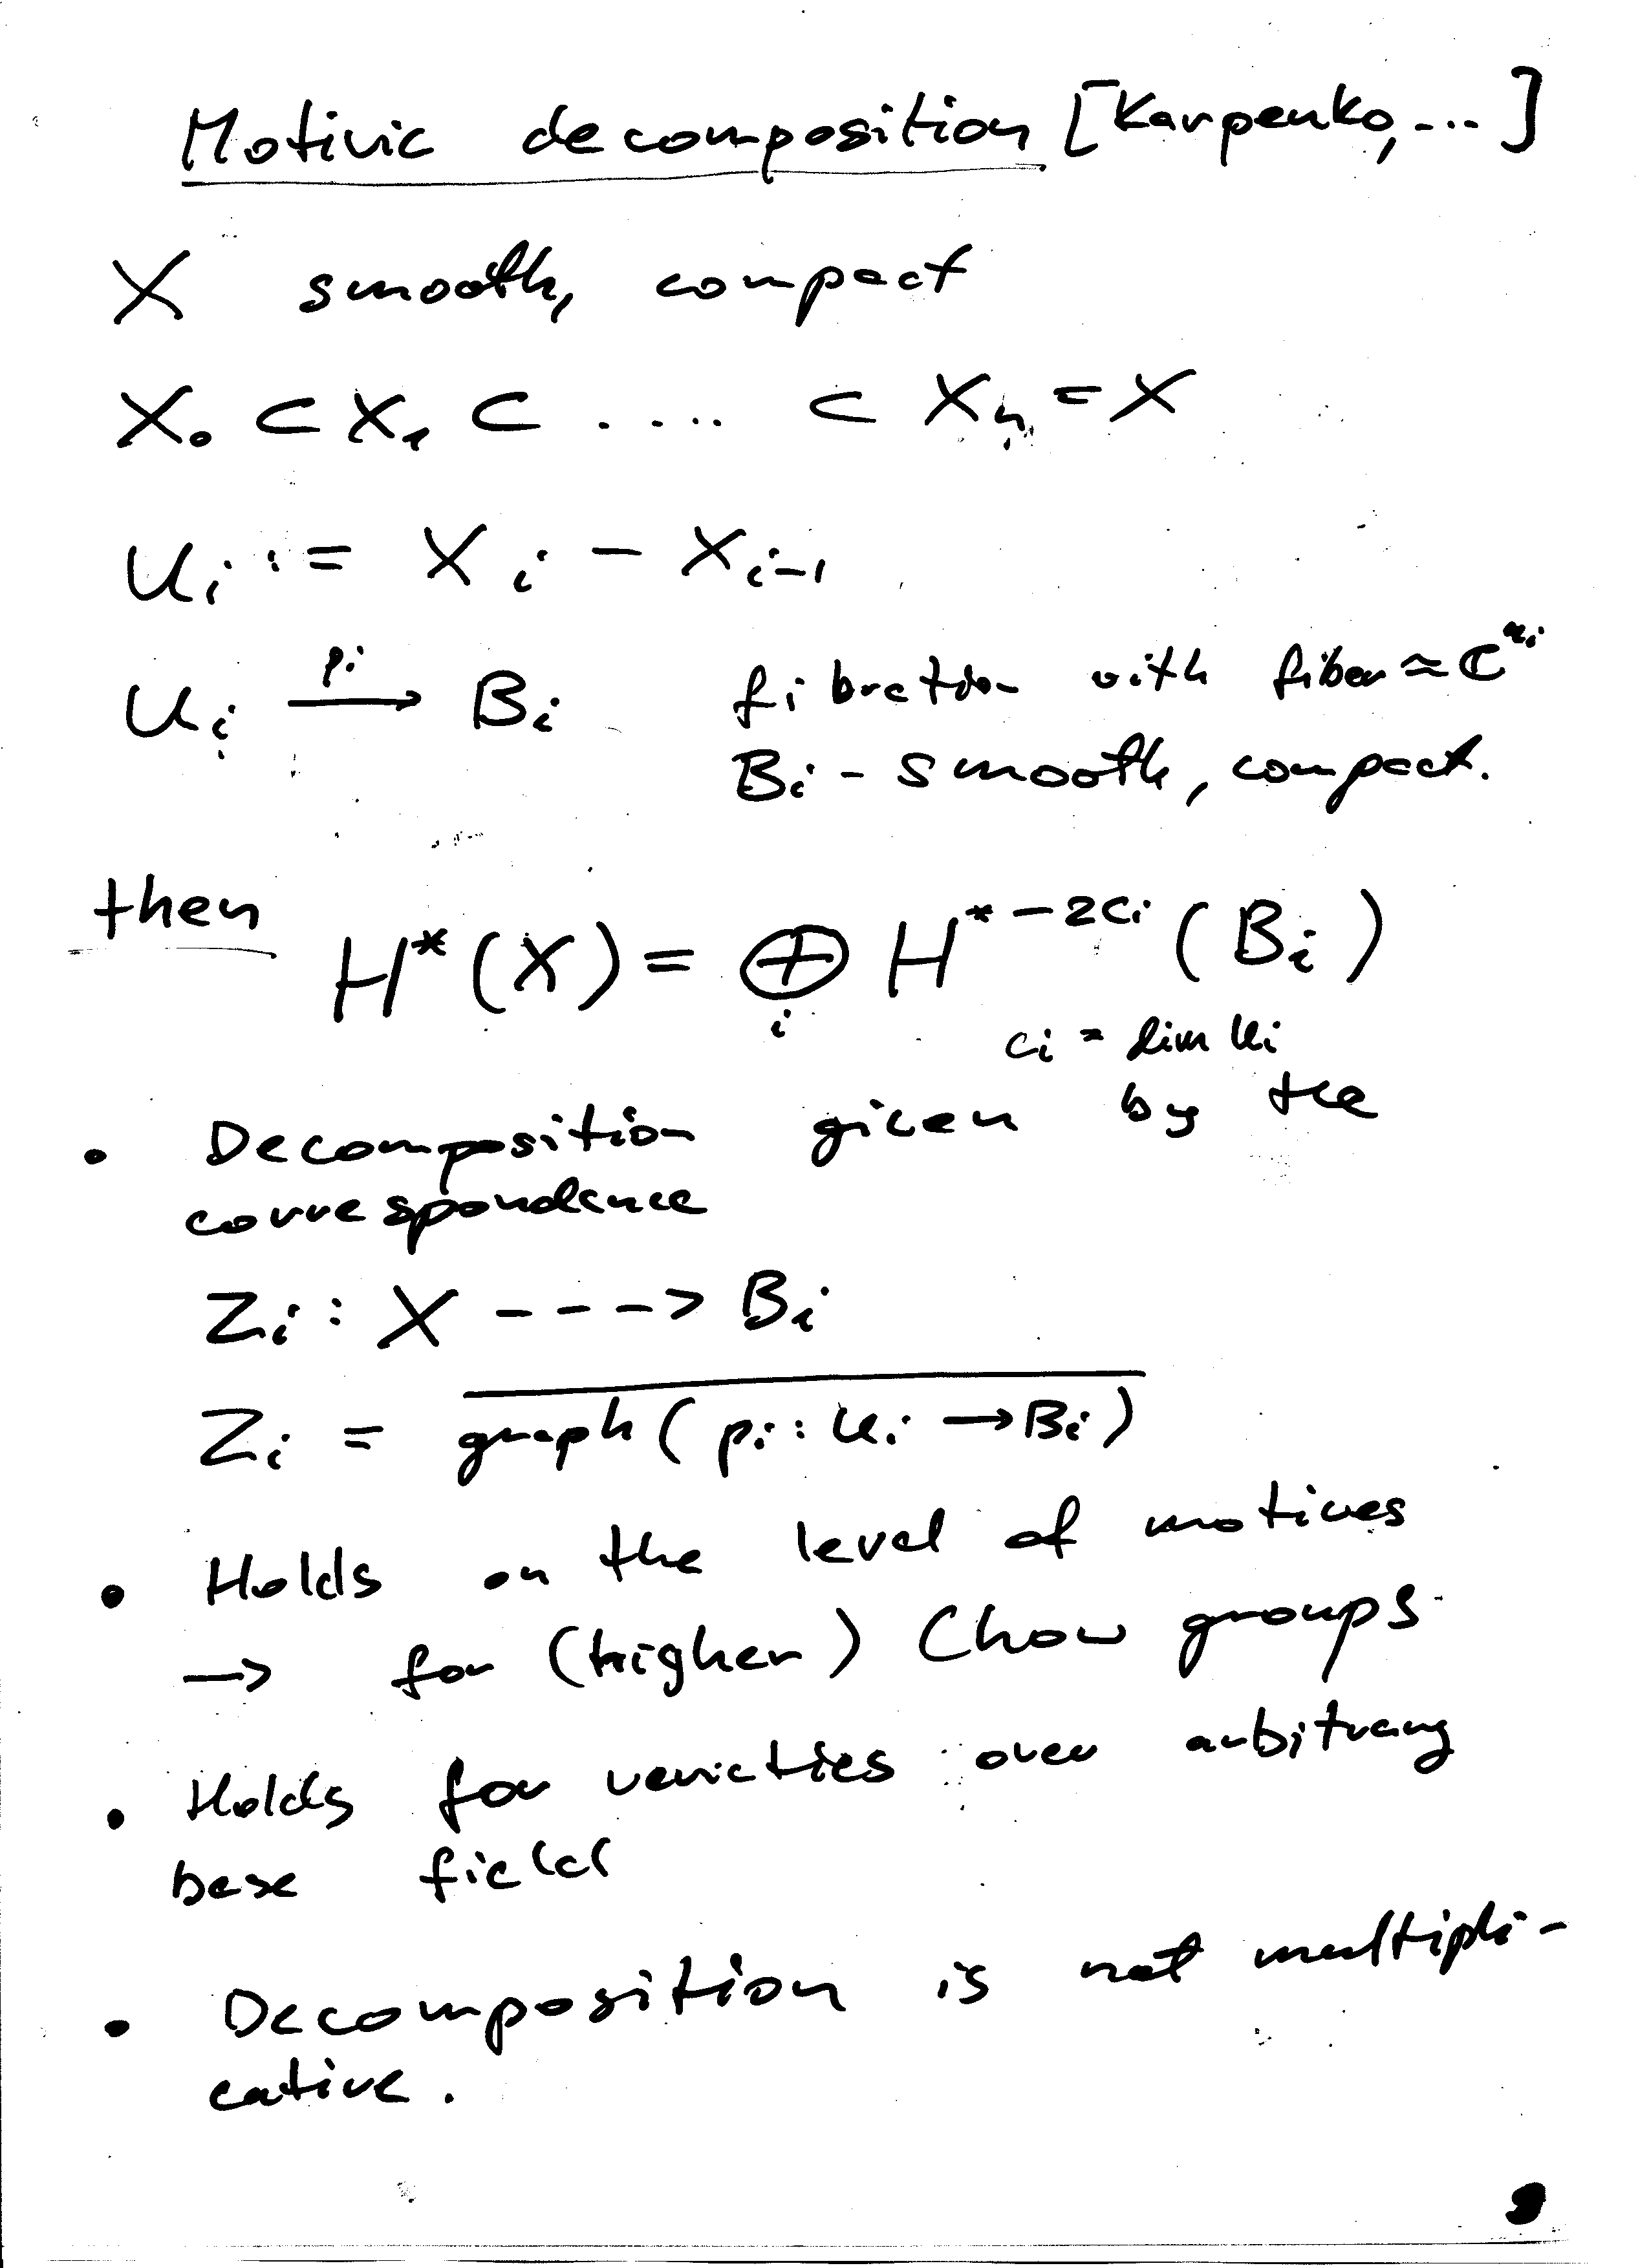 Motivic decomposition [Karpenko, ...]
X smooth, compact
X₀ ⊂ X₁ ⊂ ..... ⊂ Xₙ = X
Uᵢ := Xᵢ - Xᵢ₋₁
Uᵢ --pᵢ--> Bᵢ fibration with fiber ≈ ℂ^{nᵢ}
Bᵢ - smooth, compact.
then H*(X) = ⊕ᵢ H^{*-2cᵢ}(Bᵢ)
cᵢ = dim Uᵢ
• Decomposition given by the
correspondence
Zᵢ : X ---> Bᵢ
Zᵢ = \overline{graph(pᵢ : Uᵢ → Bᵢ)}
• Holds on the level of motives
→ for (higher) Chow groups
• Holds for varieties over arbitrary
base field
• Decomposition is not multipli-
cative.
9